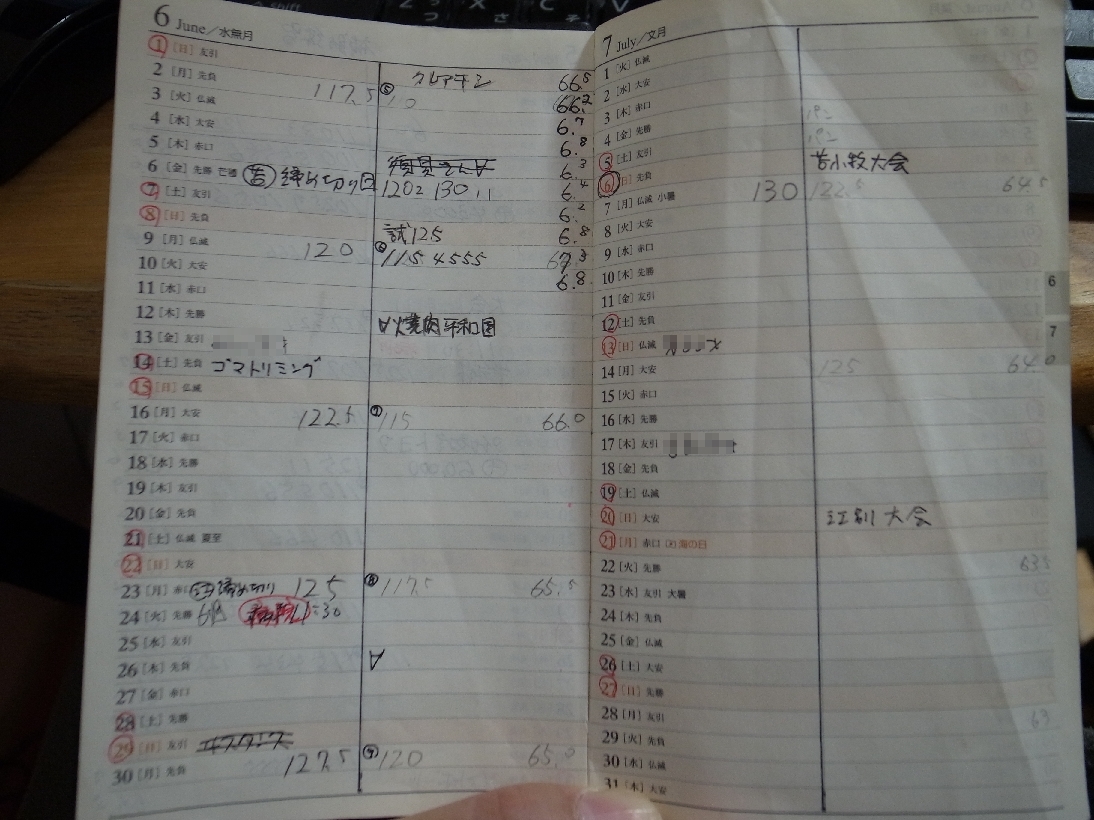 6 June／水無月
1 [日] 友引
2 [月] 先負 117.5 ⑤ クレアチン 66.5
3 [火] 仏滅 110 66.2
4 [水] 大安 6.7
5 [木] 赤口 6.8
6 [金] 先勝 芒種 苫 締め切り 6.3
7 [土] 友引 120 130 6.4
8 [日] 先負 6.2
9 [月] 仏滅 120 試125 6.8
10 [火] 大安 ⑥ 115 4555 67.3
11 [水] 赤口 6.8
12 [木] 先勝
13 [金] 友引 ∀焼肉平和園
14 [土] 先負 ゴマトリミング
15 [日] 仏滅
16 [月] 大安 122.5 ⑦ 115 66.0
17 [火] 赤口
18 [水] 先勝
19 [木] 友引
20 [金] 先負
21 [土] 仏滅 夏至
22 [日] 大安
23 [月] 赤口 締め切り 125 ⑧ 117.5 65.5
24 [火] 先勝 病院 11:30
25 [水] 友引
26 [木] 先負 ∀
27 [金] 赤口
28 [土] 先勝
29 [日] 友引
30 [月] 先負 127.5 ⑨ 120 65.0
7 July／文月
1 [火] 仏滅
2 [水] 大安
3 [木] 赤口 パン
4 [金] 先勝 パン
5 [土] 友引 苫小牧大会
6 [日] 先負
7 [月] 仏滅 小暑 130 122.5 64.5
8 [火] 大安
9 [水] 赤口
10 [木] 先勝
11 [金] 友引
12 [土] 先負
13 [日] 仏滅
14 [月] 大安 125 64.0
15 [火] 赤口
16 [水] 先勝
17 [木] 友引
18 [金] 先負
19 [土] 仏滅
20 [日] 大安 江別大会
21 [月] 赤口 海の日
22 [火] 先勝 63.5
23 [水] 友引 大暑
24 [木] 先負
25 [金] 仏滅
26 [土] 大安
27 [日] 先勝
28 [月] 友引 63
29 [火] 先負
30 [水] 仏滅
31 [木] 大安
6
7